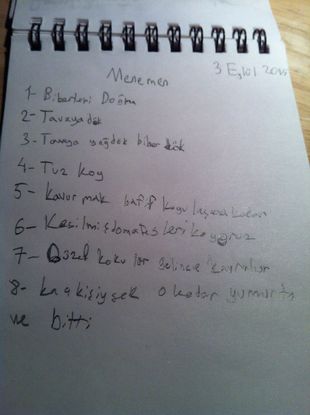 3 Eylül 2015
Menemen
1- Biberleri Doğra
2- Tavaya dök
3- Tavaya yağdök biber dök
4- Tuz koy
5- Kavurmak hafif koyulaşana kadar
6- Kesilmiş domatesleri koyoruz
7- Güzel kokular gelince karıştır
8- kaç kişiysek o kadar yumurta
ve bitti